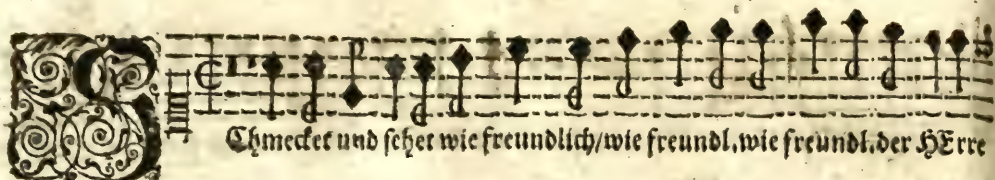 SChmecket und sehet wie freundlich/wie freundl. wie freundl. der HErre